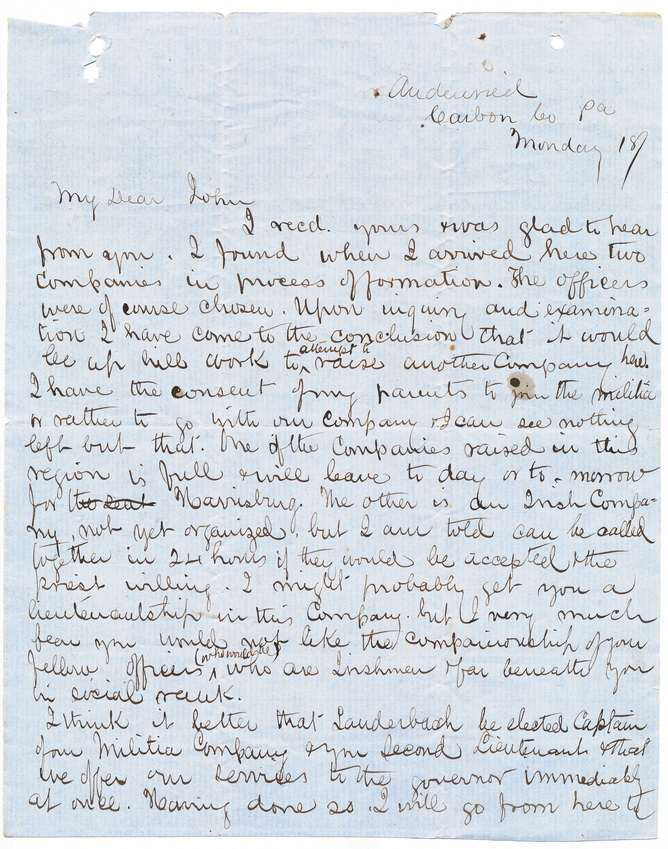 Audenried
Carbon Co Pa
Monday 18/
My Dear John
I recd. yours & was glad to hear
from you. I found when I arrived here two
companies in process of formation. The officers
were of course chosen. Upon inquiry and examina-
tion I have come to the conclusion that it would
be up hill work to attempt to raise another Company here.
I have the consent of my parents to join the militia
or rather to go with our company & I can see nothing
left but that. One of the Companies raised in this
region is full & will leave to day or to-morrow
for to sent Harrisburg. The other is an Irish Compa-
ny, not yet organized, but I am told can be called
together in 24 hours if they would be accepted & the
priest willing. I might probably get you a
lieutenantship in this Company. but I very much
fear you would not like the companionship of your
fellow officers (who would be) who are Irishmen & far beneath you
in social rank.
I think it better that Lauderbach be elected Captain
of our Militia Company & you Second Lieutenant & that
we offer our services to the governor immediately
at once. Having done so I will go from here to